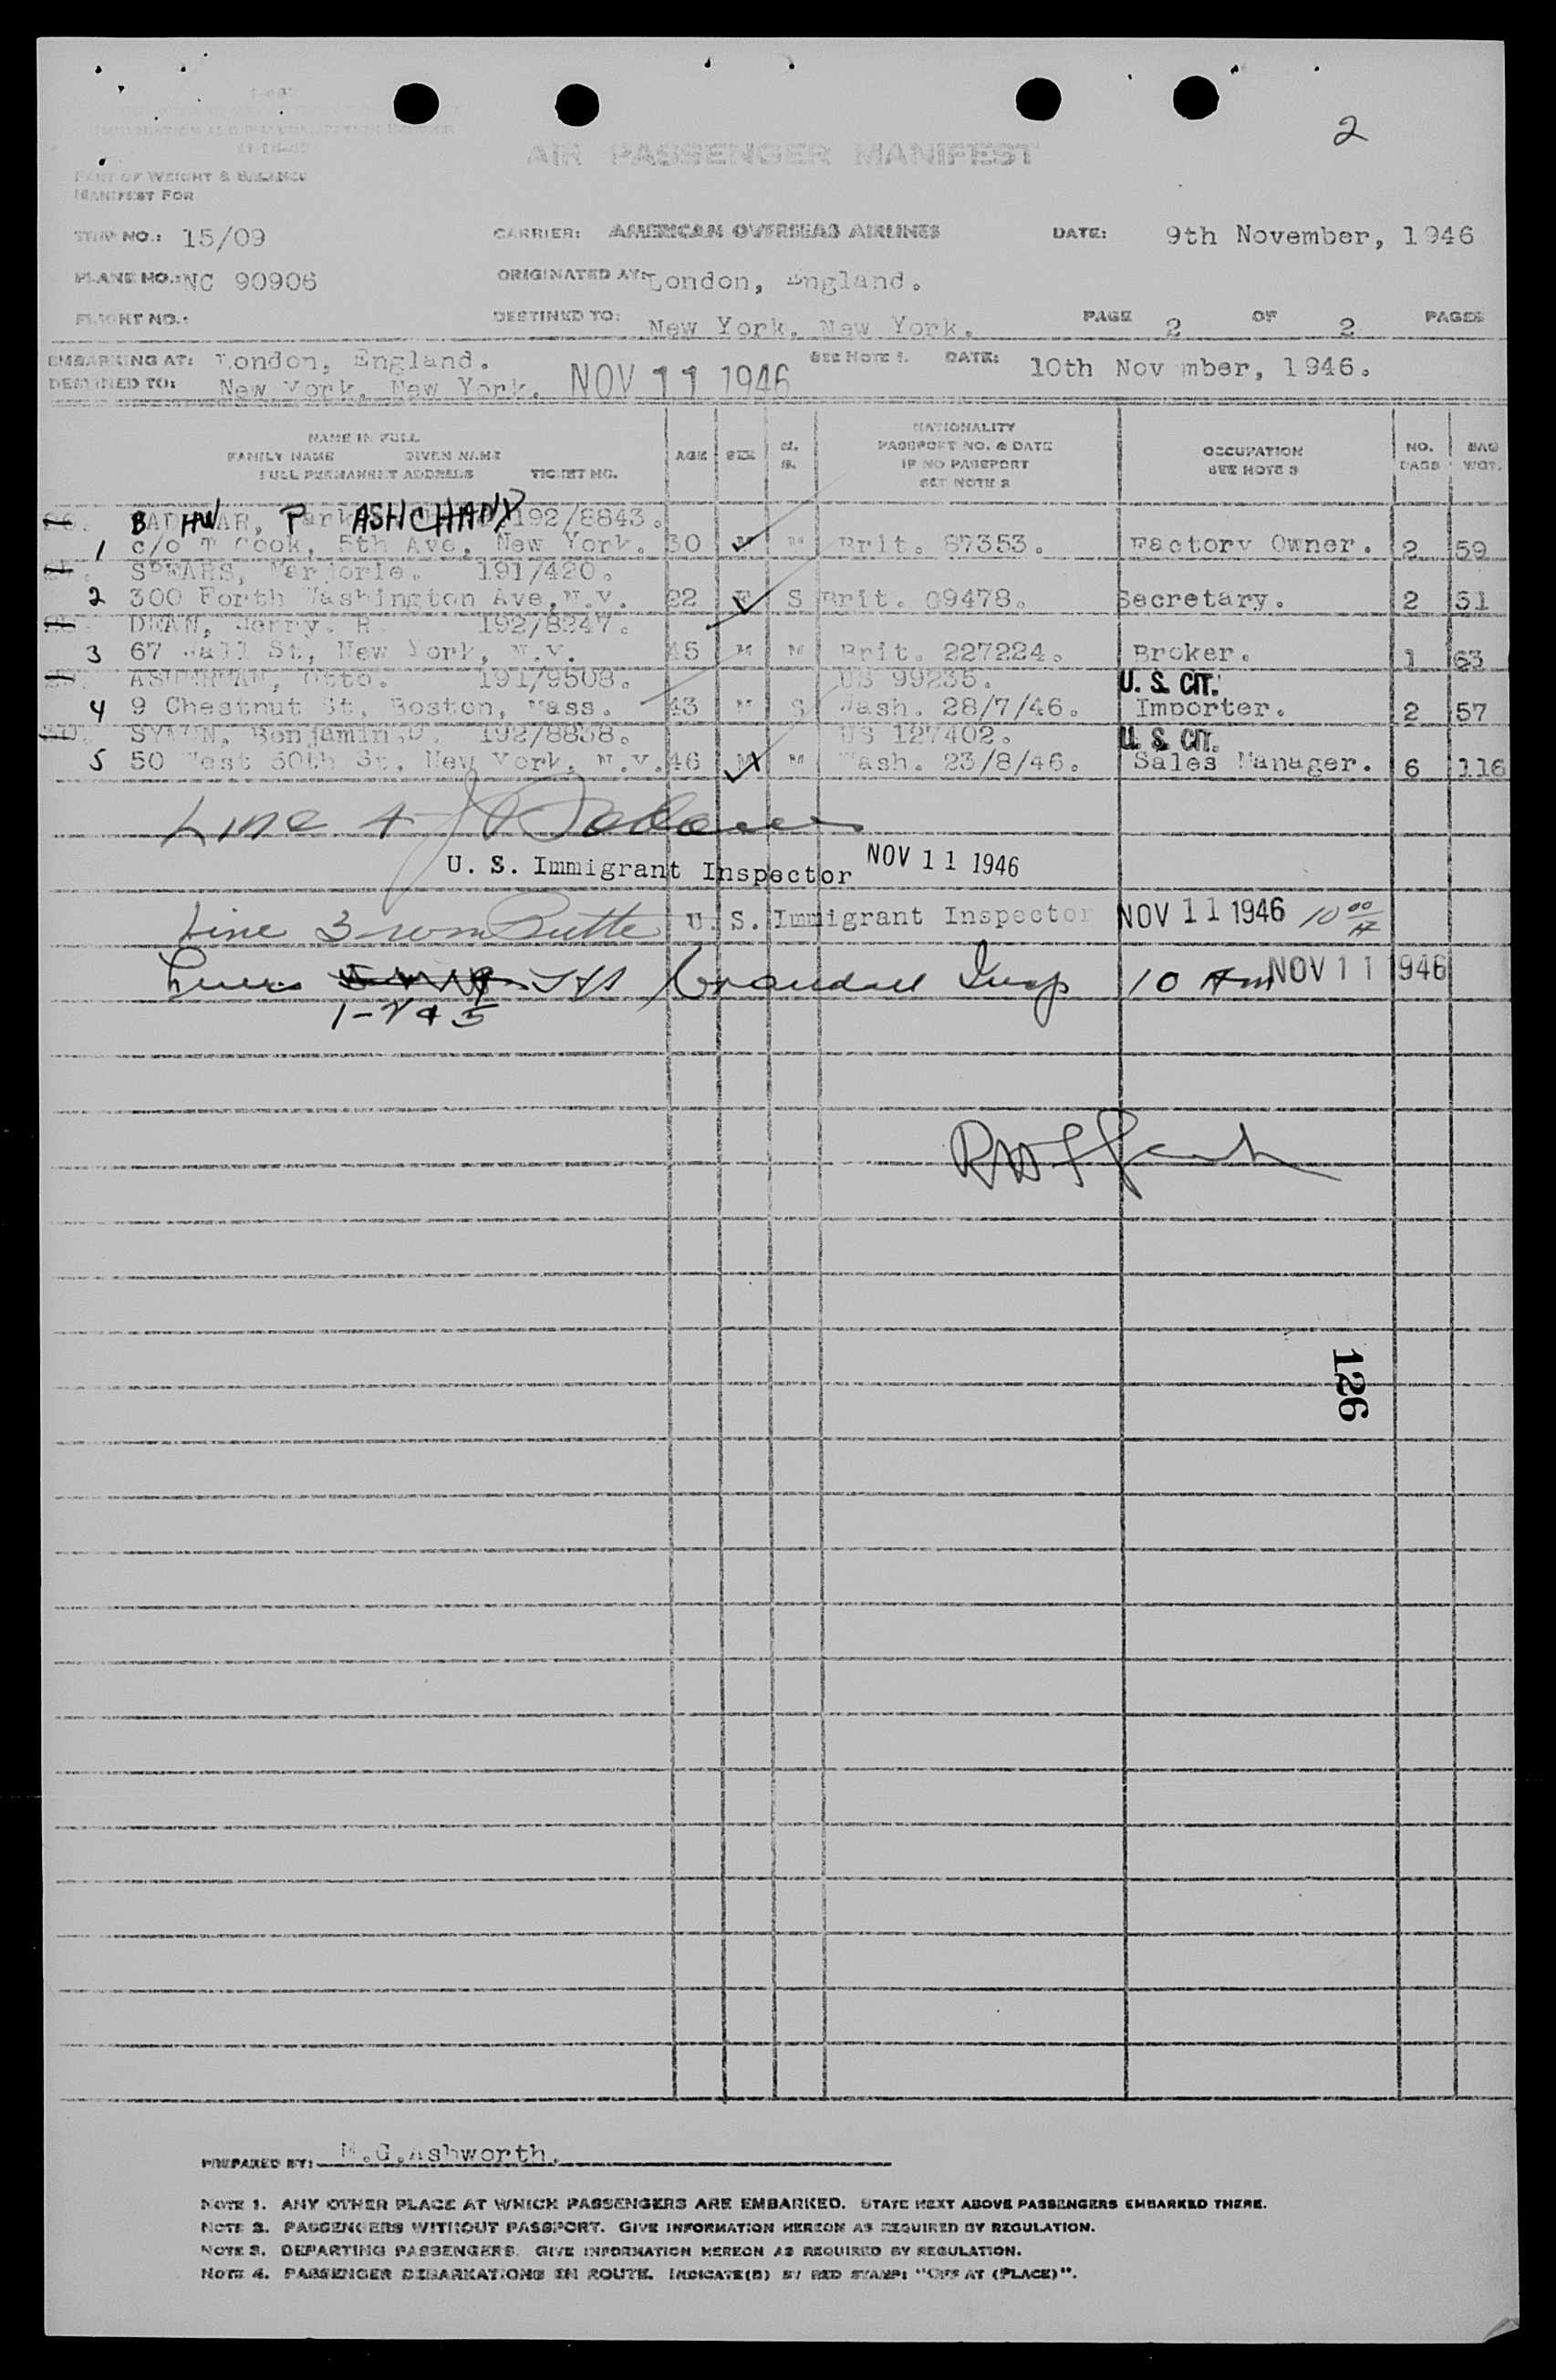 2
AIR PASSENGER MANIFEST
PART OF WEIGHT & BALANCE
MANIFEST FOR
TRIP NO.: 15/09 CARRIER: AMERICAN OVERSEAS AIRLINES DATE: 9th November, 1946
PLANE NO.: NC 90906 ORIGINATED AT: London, England.
FLIGHT NO.: DESTINED TO: New York, New York. PAGE 2 OF 2 PAGES
EMBARKING AT: London, England. SEE NOTE 1. DATE: 10th Nov mber, 1946.
DESTINED TO: New York, New York. NOV 11 1946
NAME IN FULL
FAMILY NAME GIVEN NAME
FULL PERMANENT ADDRESS TICKET NO.
AGE SEX
NATIONALITY
PASSPORT NO. & DATE
IF NO PASSPORT
SEE NOTE 2
OCCUPATION
SEE NOTE 3
NO. BAGS
BAG WGT.
ASHCHANX 192/8843.
1 c/o T Cook, 5th Ave, New York. 30 M M Brit. 87353. Factory Owner. 2 59
SPEARS, Marjorie. 191/420.
2 300 Forth Washington Ave, N.Y. 22 F S Brit. 09478. Secretary. 2 51
DEAN, Jerry. R. 192/8247.
3 67 Wall St, New York, N.Y. 45 M M Brit. 227224. Broker. 1 63
Otto. 191/9508. US 99235. U. S. CIT.
4 9 Chestnut St, Boston, Mass. 43 M S Wash. 28/7/46. Importer. 2 57
Benjamin.D. 192/8838. US 127402. U. S. CIT.
5 50 West 50th St, New York, N.Y. 46 M M Wash. 23/8/46. Sales Manager. 6 116
Line 4
U. S. Immigrant Inspector NOV 11 1946
Line 3 U. S. Immigrant Inspector NOV 11 1946 10 00/A
Lines Crandall Insp 10 Am NOV 11 1946
1-2 & 5
126
PREPARED BY: M.G.Ashworth.
NOTE 1. ANY OTHER PLACE AT WHICH PASSENGERS ARE EMBARKED. STATE NEXT ABOVE PASSENGERS EMBARKED THERE.
NOTE 2. PASSENGERS WITHOUT PASSPORT. GIVE INFORMATION HEREON AS REQUIRED BY REGULATION.
NOTE 3. DEPARTING PASSENGERS. GIVE INFORMATION HEREON AS REQUIRED BY REGULATION.
NOTE 4. PASSENGER DEBARKATIONS EN ROUTE. INDICATE(D) BY RED STAMP: "OFF AT (PLACE)".